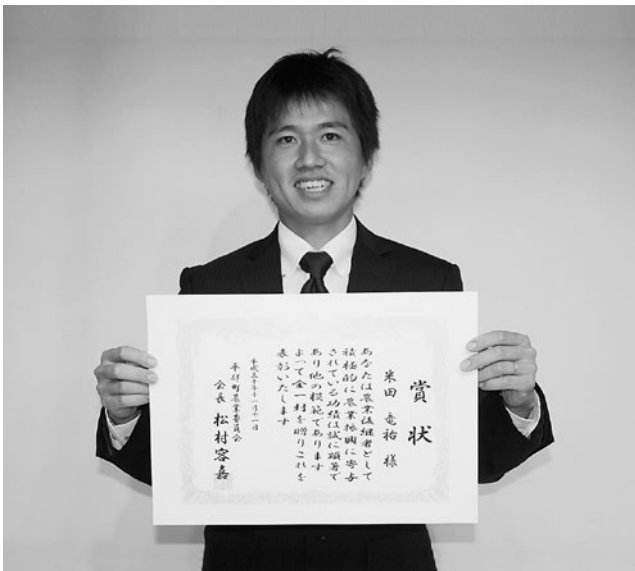 賞状
米田 竜祐 様
あなたは農業後継者として
積極的に農業振興に寄与
されている功績は誠に顕著で
あり他の模範であります
よって金一封を贈りこれを
表彰いたします
平成三十年十一月十一日
平群町農業委員会
会長 松村容嘉